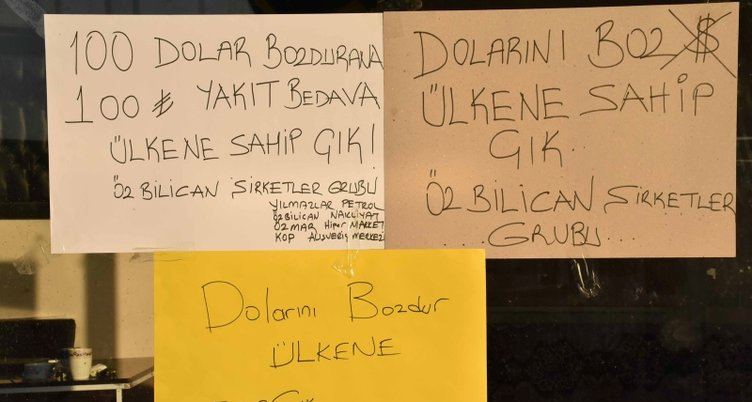 100 DOLAR BOZDURANA
100 ₺ YAKIT BEDAVA
ÜLKENE SAHİP ÇIK!
ÖZBİLİCAN ŞİRKETLER GRUBU
YILMAZLAR PETROL
ÖZBİLİCAN NAKLİYAT
ÖZMAR HİPER MARKET
KOP ALIŞVERİŞ MERKEZİ
DOLARINI BOZ $
ÜLKENE SAHİP
ÇIK
ÖZBİLİCAN ŞİRKETLER
GRUBU...
Dolarını Bozdur
ÜLKENE